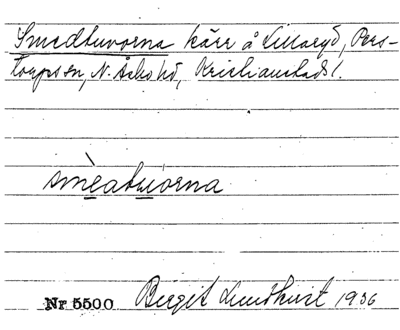 Smedtuvorna kärr å Lillaryd, Pers-
torps sn, N. Åsbo hd, Kristianstads l.
smèatuvorna
Nr 5500 Birgit Lundkvist 1936